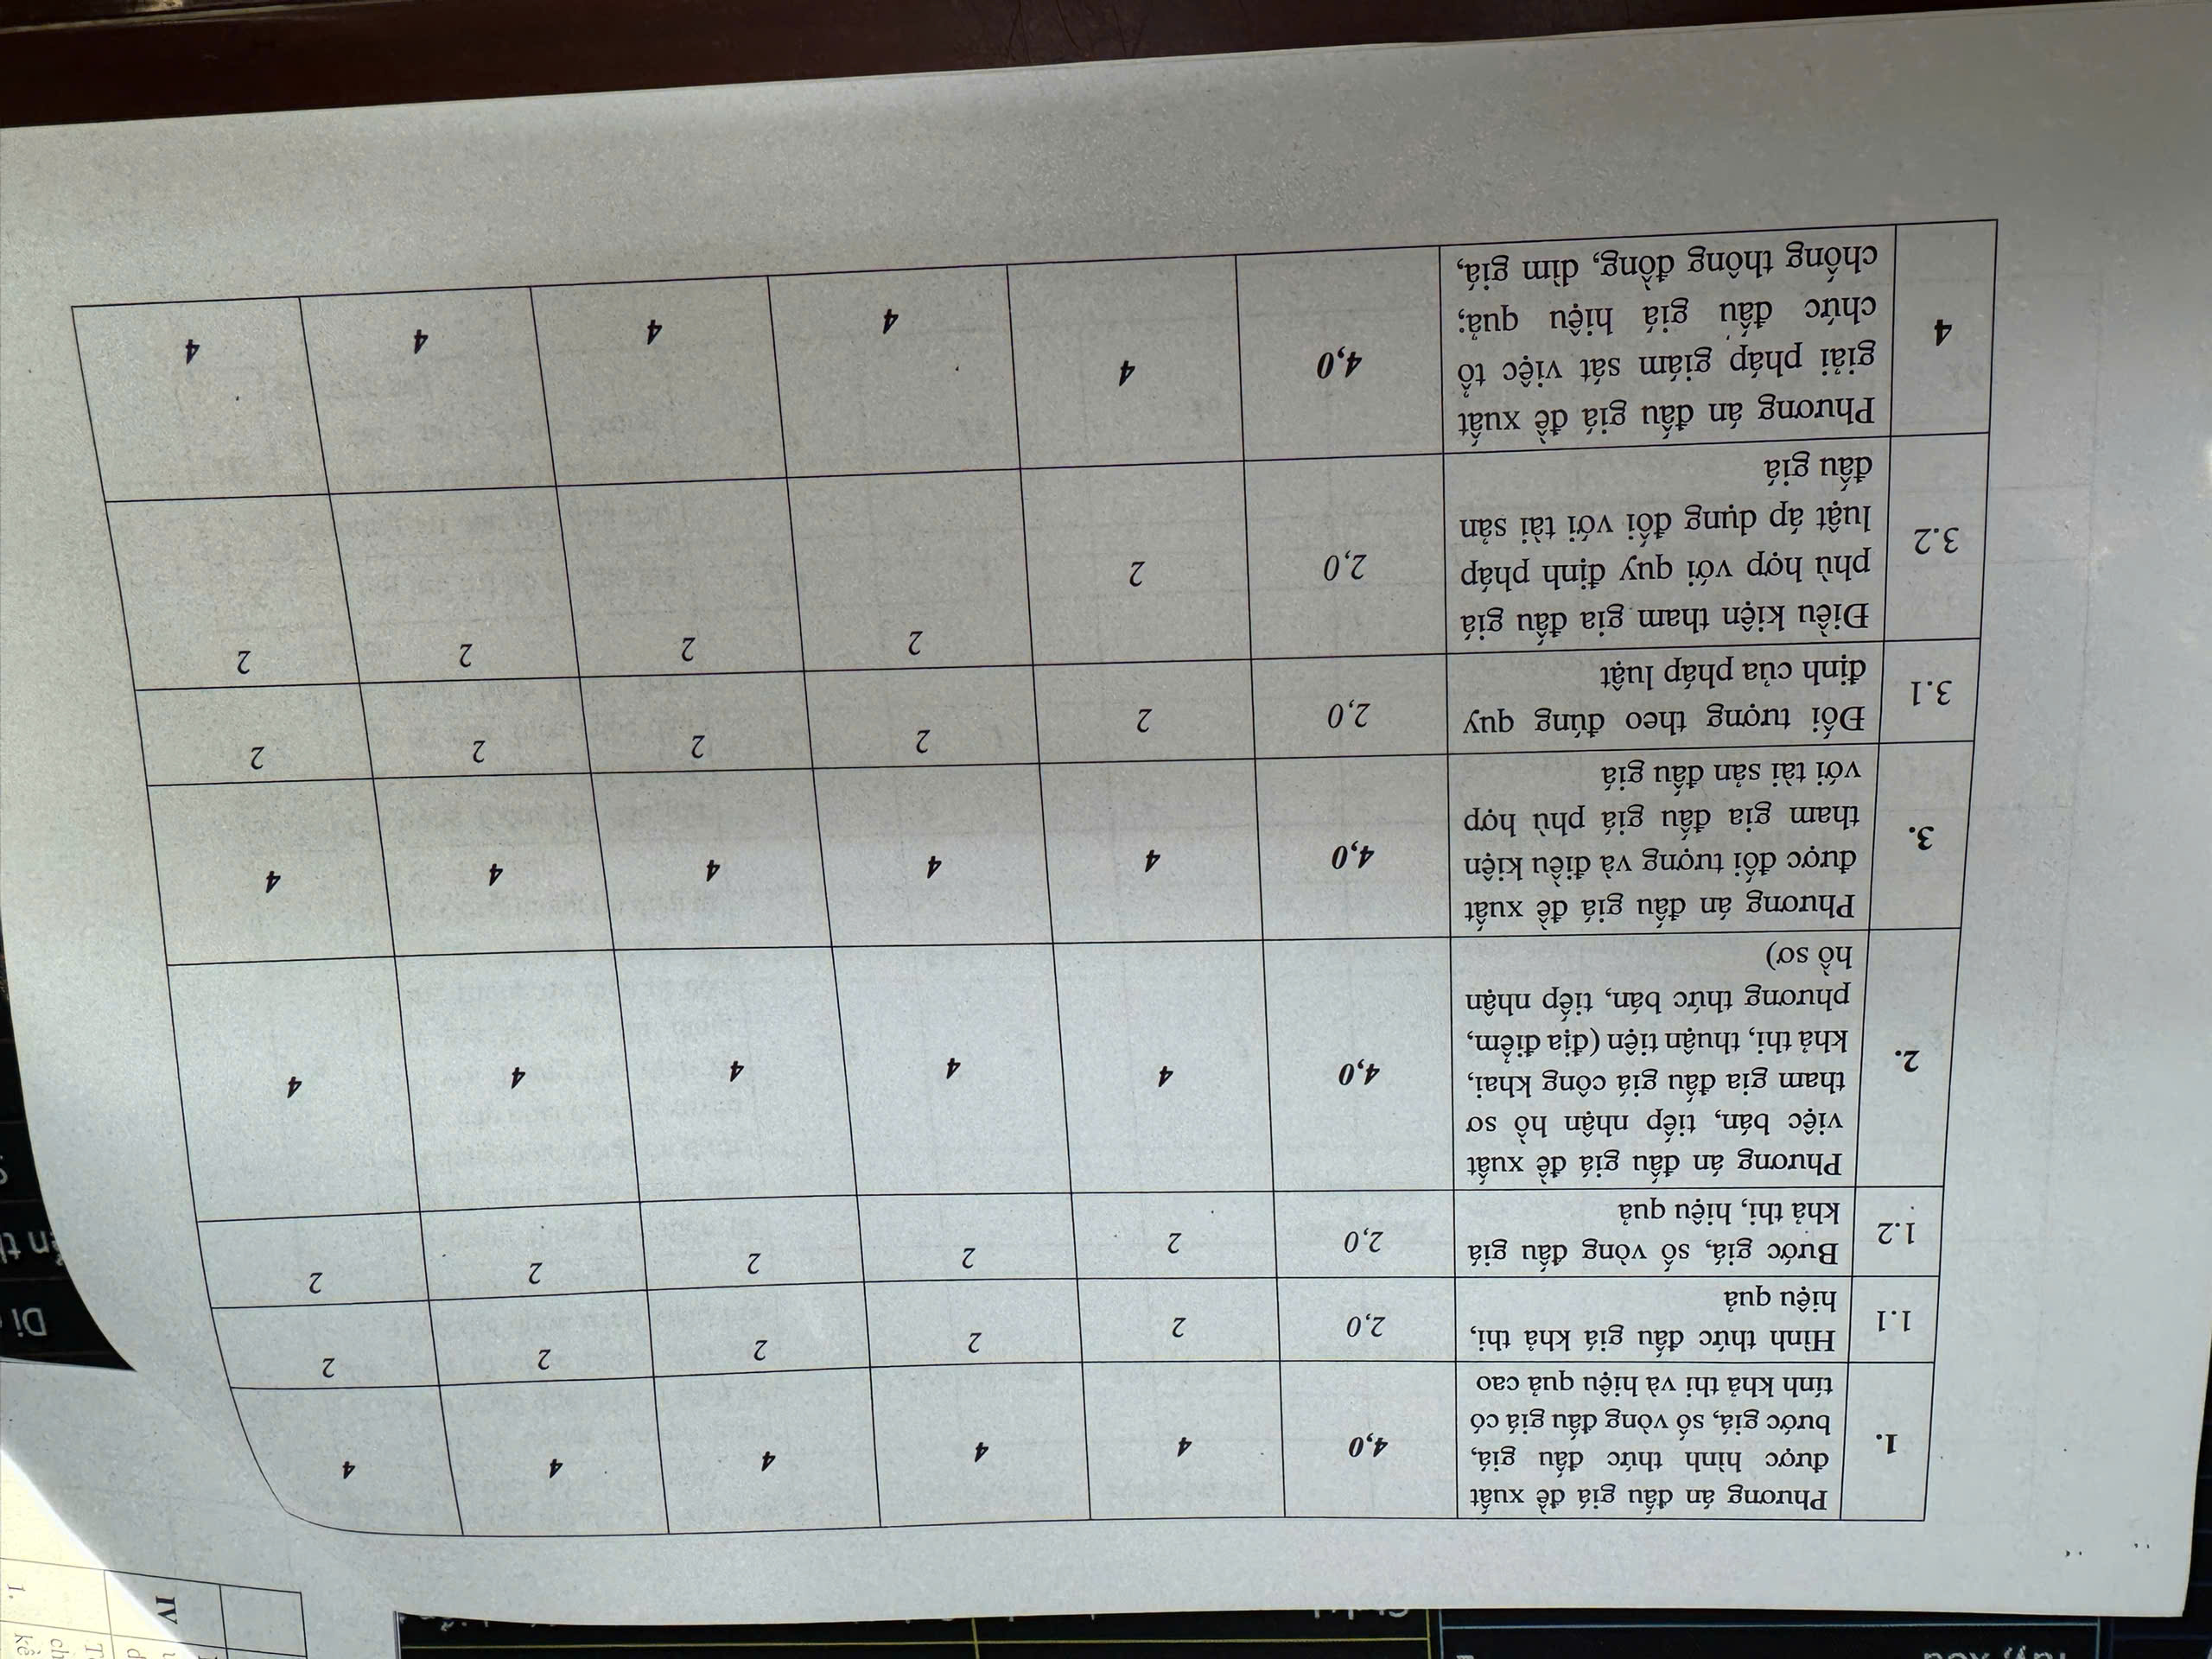 1.
Phương án đấu giá đề xuất
được hình thức đấu giá,
bước giá, số vòng đấu giá có
tính khả thi và hiệu quả cao
4,0 4 4 4 4 4
1.1
Hình thức đấu giá khả thi,
hiệu quả
2,0 2 2 2 2 2
1.2
Bước giá, số vòng đấu giá
khả thi, hiệu quả
2,0 2 2 2 2 2
2.
Phương án đấu giá đề xuất
việc bán, tiếp nhận hồ sơ
tham gia đấu giá công khai,
khả thi, thuận tiện (địa điểm,
phương thức bán, tiếp nhận
hồ sơ)
4,0 4 4 4 4 4
3.
Phương án đấu giá đề xuất
được đối tượng và điều kiện
tham gia đấu giá phù hợp
với tài sản đấu giá
4,0 4 4 4 4 4
3.1
Đối tượng theo đúng quy
định của pháp luật
2,0 2 2 2 2 2
3.2
Điều kiện tham gia đấu giá
phù hợp với quy định pháp
luật áp dụng đối với tài sản
đấu giá
2,0 2 2 2 2 2
4
Phương án đấu giá đề xuất
giải pháp giám sát việc tổ
chức đấu giá hiệu quả;
chống thông đồng, dìm giá,
4,0 4 4 4 4 4
IV
1.
Di